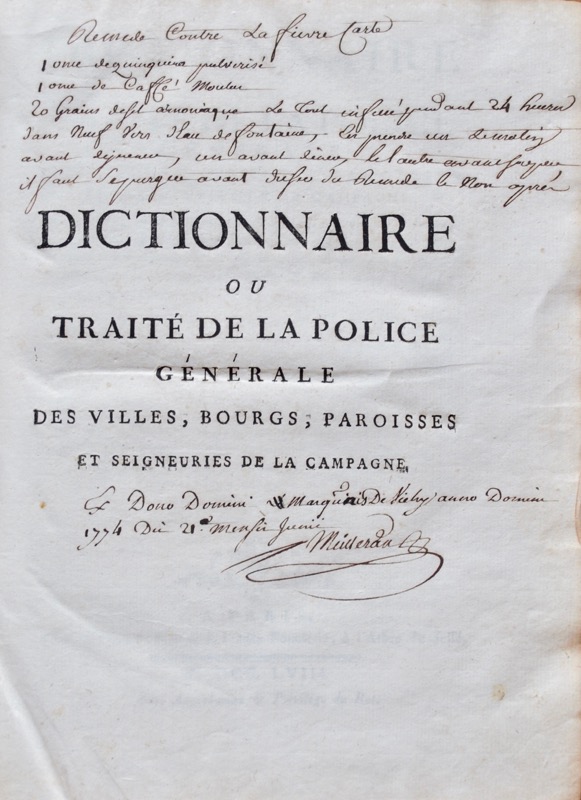 Remede Contre La fievre Carte
1 once de quinquina pulverisé
1 once de Caffé Moulu
20 Grains de sel armoniaque Le Tout infusé pendant 24 heures
dans Neuf Vers d'eau de fontaine, en prendre un Le matin
avant déjeuner, un avant diner, & l'autre avant souper
il faut Se purger avant du Remede & Non après
DICTIONNAIRE
OU
TRAITÉ DE LA POLICE
GÉNÉRALE
DES VILLES, BOURGS, PAROISSES
ET SEIGNEURIES DE LA CAMPAGNE,
Ex Dono Domini Marquis De Vichy anno Domini
1774 Die 21a Mensis Junii
Meilleran